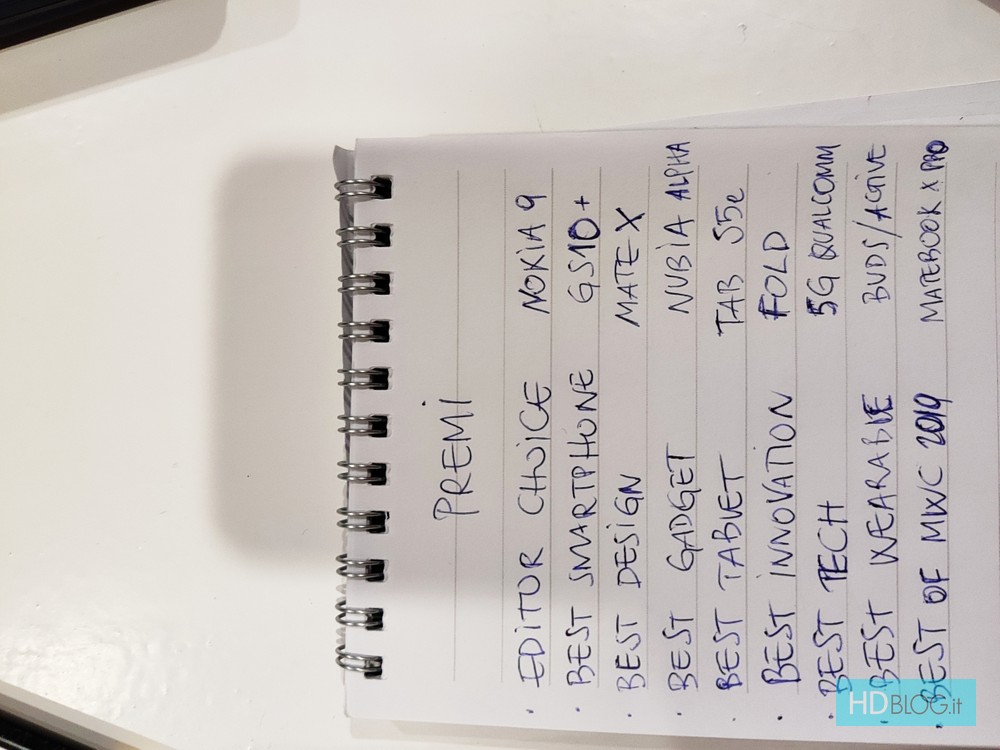 PREMI
· EDITOR CHOICE NOKIA 9
· BEST SMARTPHONE GS10+
· BEST DESIGN MATE X
· BEST GADGET NUBIA ALPHA
· BEST TABLET TAB S5e
· BEST INNOVATION FOLD
· BEST TECH 5G QUALCOMM
· BEST WEARABLE BUDS/ACTIVE
· BEST OF MWC 2019 MATEBOOK X PRO
HDBLOG.it